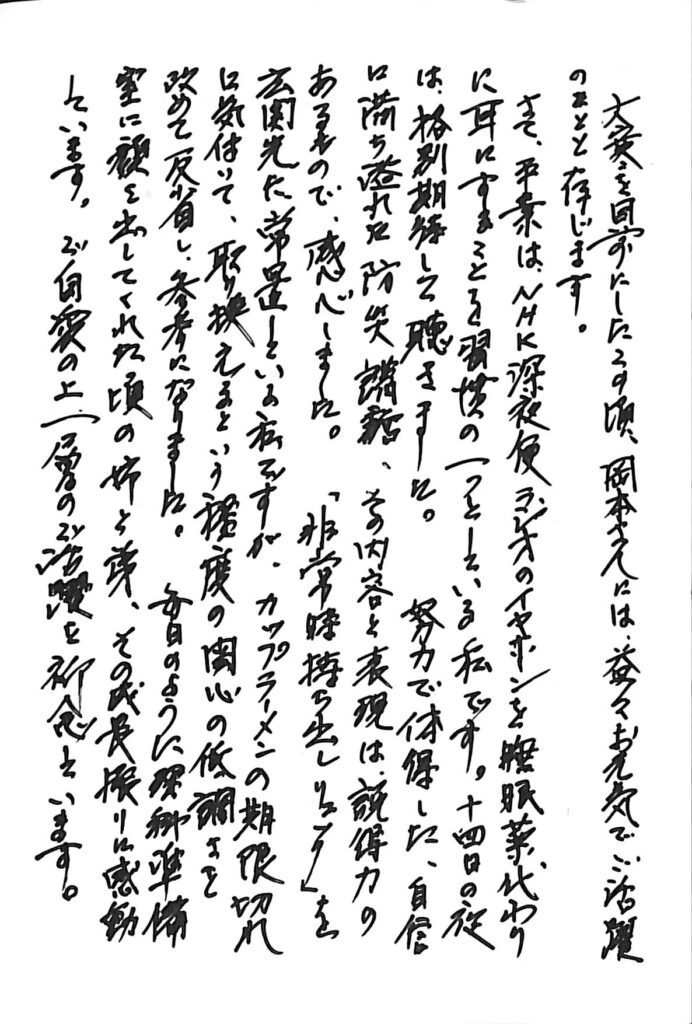 大寒を目前にしたこの頃、岡本さんには、益々お元気でご活躍
のことと存じます。
さて、平素は、NHK深夜便ラジオのイヤホンを睡眠薬代わり
に耳にすることを習慣の一つとしている私です。十四日の夜
は、格別期待して聴きました。 努力で体得した、自信
に満ち溢れた防災講話、その内容と表現は、説得力の
あるもので、感心しました。 「非常時持ち出しリュック」を
玄関先に常置している私ですが、カップラーメンの期限切れ
に気付いて、取り換えるという程度の関心の低調さを
改めて反省し、参考になりました。 毎日のように理科準備
室に顔を出してくれた頃の姉と弟、その成長振りに感動
しています。ご自愛の上、一層のご活躍を祈念しています。